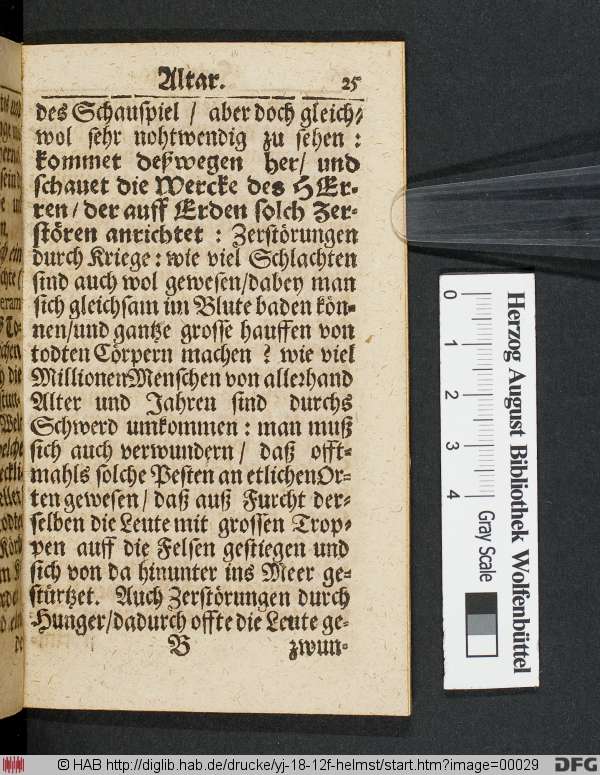 Altar. 25
des Schauspiel / aber doch gleich⸗
wol sehr nohtwendig zu sehen :
kommet deßwegen her/ und
schauet die Wercke des HEr⸗
ren / der auff Erden solch Zer⸗
stören anrichtet : Zerstörungen
durch Kriege : wie viel Schlachten
sind auch wol gewesen/dabey man
sich gleichsam im Blute baden kön⸗
nen/und gantze grosse hauffen von
todten Cörpern machen ? wie viel
Millionen Menschen von allerhand
Alter und Jahren sind durchs
Schwerd umkommen : man muß
sich auch verwundern/ daß offt⸗
mahls solche Pesten an etlichen Or⸗
ten gewesen/ daß auß Furcht der⸗
selben die Leute mit grossen Trop⸗
pen auff die Felsen gestiegen und
sich von da hinunter ins Meer ge⸗
stürtzet. Auch Zerstörungen durch
Hunger/dadurch offte die Leute ge⸗
B zwun⸗
0 1 2 3 4
Herzog August Bibliothek Wolfenbüttel
Gray Scale
© HAB http://diglib.hab.de/drucke/yj-18-12f-helmst/start.htm?image=00029
DFG